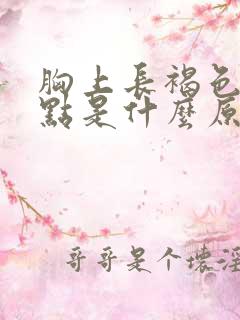 胸上長褐色
點是什麼原
哥哥是个壞淫